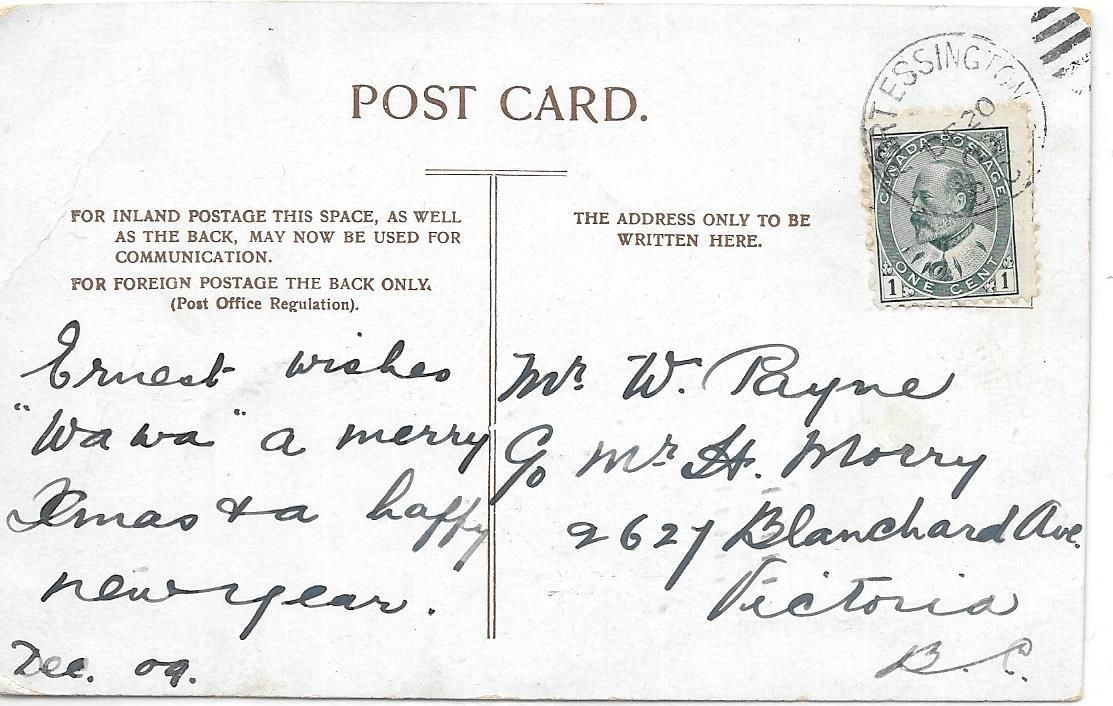 POST CARD.
FOR INLAND POSTAGE THIS SPACE, AS WELL
AS THE BACK, MAY NOW BE USED FOR
COMMUNICATION.
FOR FOREIGN POSTAGE THE BACK ONLY.
(Post Office Regulation).
THE ADDRESS ONLY TO BE
WRITTEN HERE.
RT ESSINGTON
20
CANADA POSTAGE
ONE CENT
1 1
Ernest wishes
"Wa wa" a merry
Xmas & a happy
new year.
Dec. 09.
Mr. W. Payne
c/o Mr. H. Morry
2627 Blanchard Ave.
Victoria
B.C.